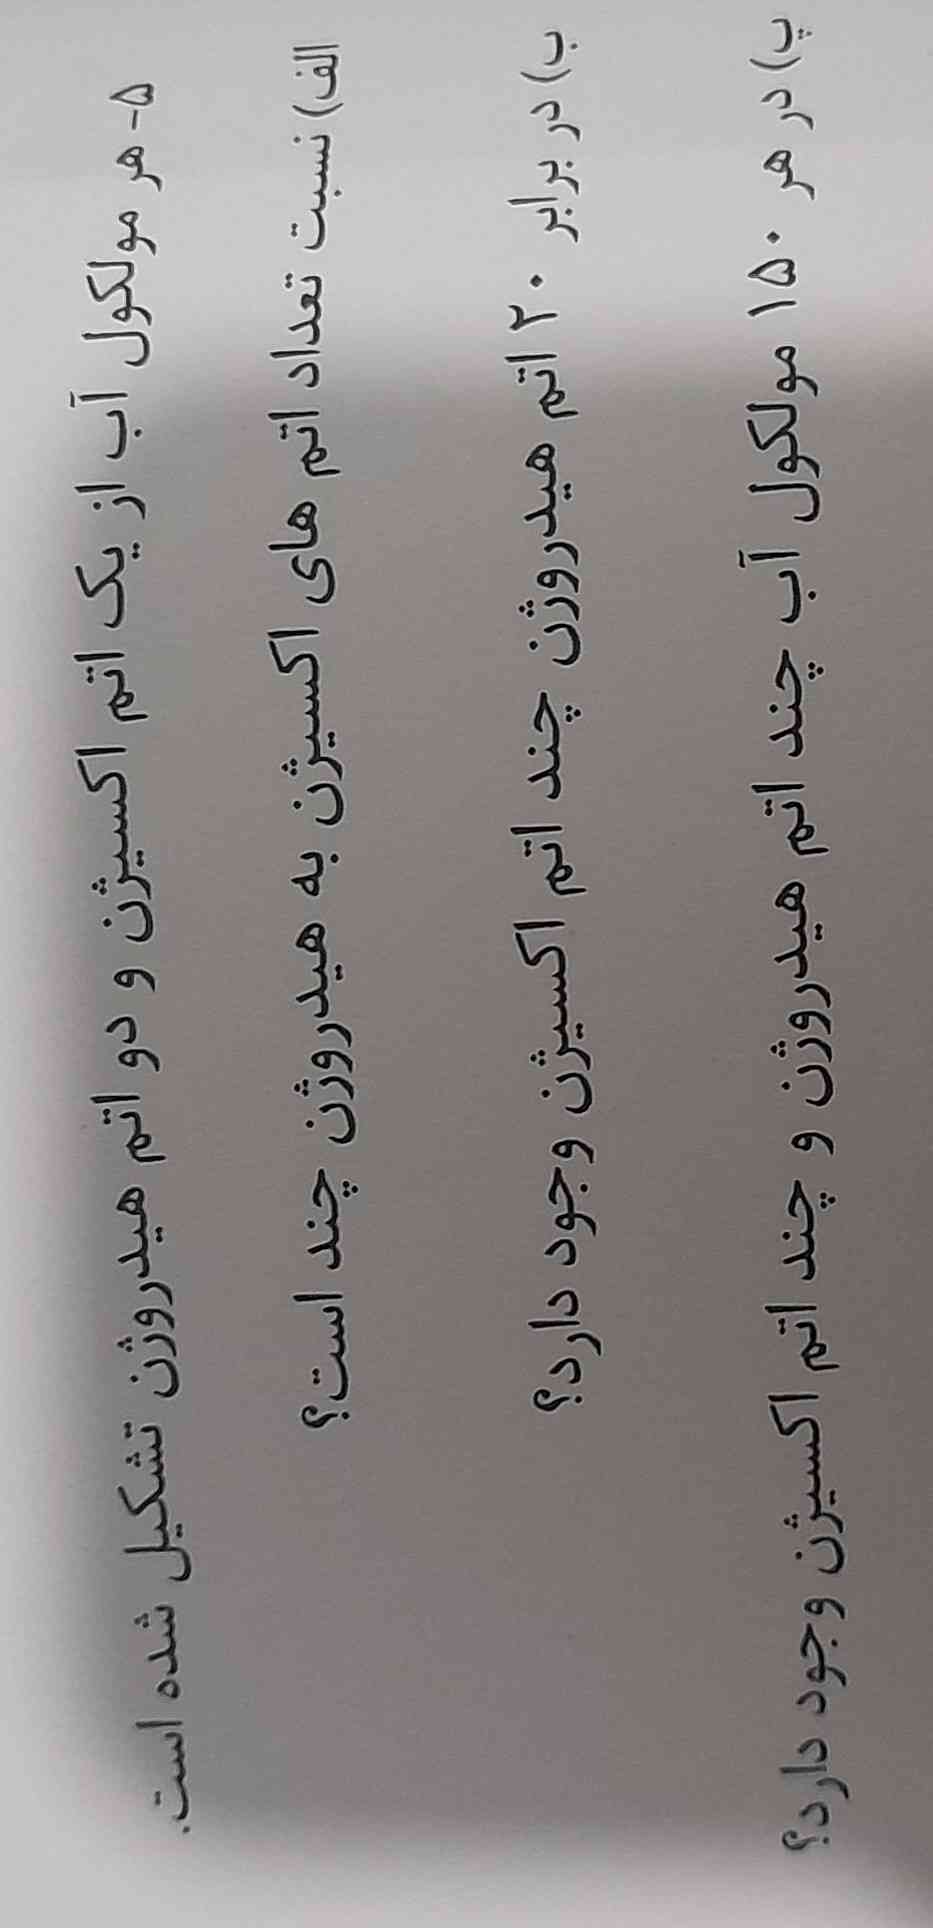 ۵- هر مولکول آب از یک اتم اکسیژن و دو اتم هیدروژن تشکیل شده است.
الف) نسبت تعداد اتم های اکسیژن به هیدروژن چند است؟
ب) در برابر ۲۰ اتم هیدروژن چند اتم اکسیژن وجود دارد؟
پ) در هر ۱۵۰ مولکول آب چند اتم هیدروژن و چند اتم اکسیژن وجود دارد؟